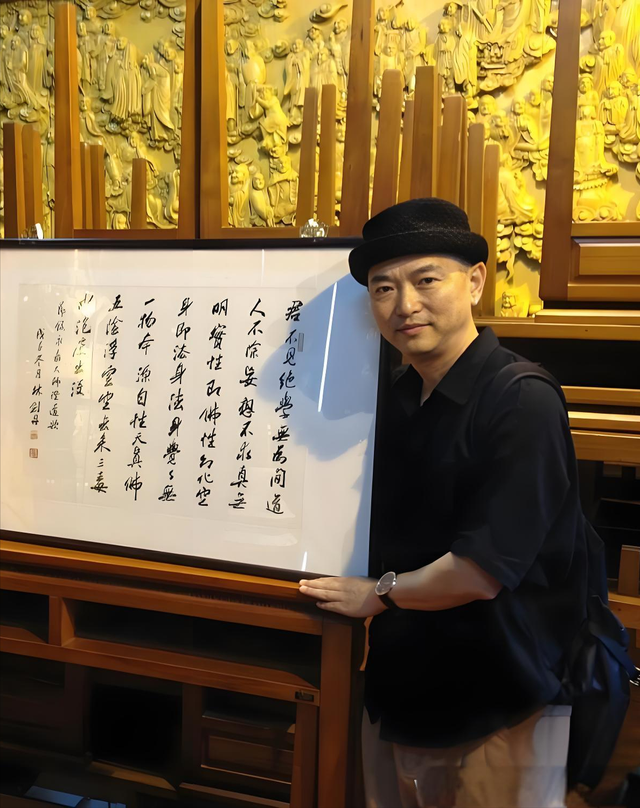 君不見絕學無為閒道
人不除妄想不求真無
明實性即佛性幻化空
身即法身法身覺了無
一物本源自性天真佛
五陰浮雲空去來三毒
水泡虛出沒
節錄永嘉大師證道歌
冬月林剑丹